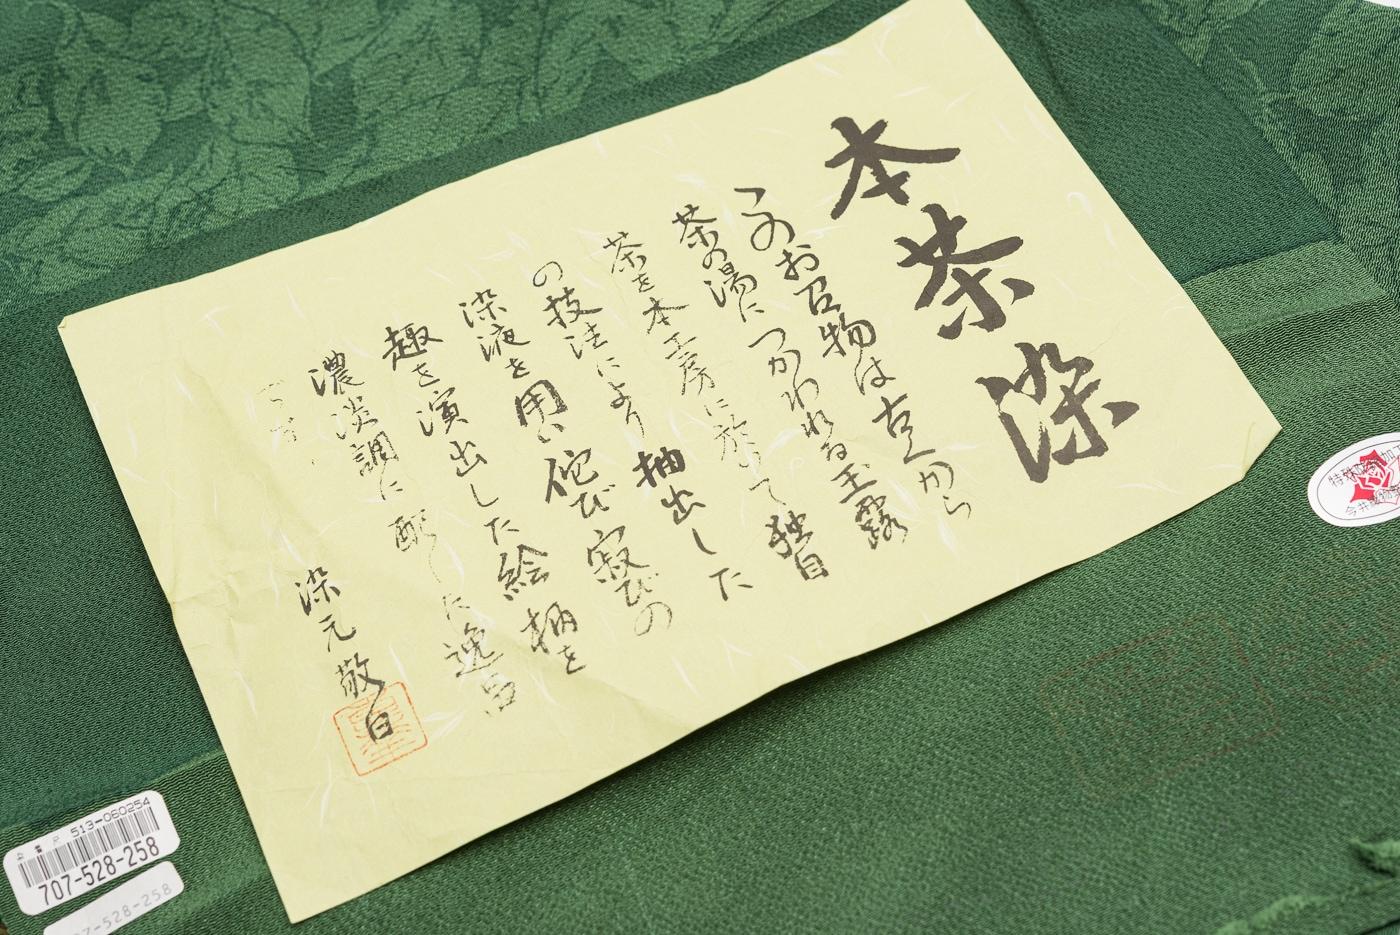 本茶染
このお召物は古くから
茶の湯につかわれる玉露
茶を本工房に於いて独自
の技法により抽出した
染液を用い侘び寂びの
趣を演出した絵柄を
濃淡調に配した逸品
です
染元 敬白
513-060254
707-528-258
7-528-258
特殊
加工
今井